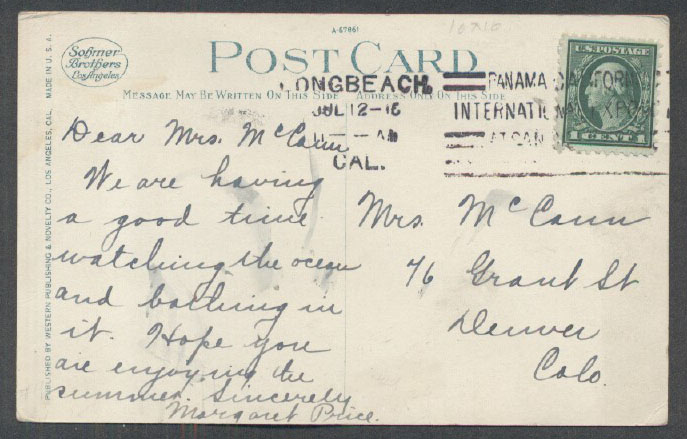 A-67861
10710
Sohmer
Brothers
Los Angeles
POST CARD
MESSAGE MAY BE WRITTEN ON THIS SIDE
ADDRESS ONLY ON THIS SIDE
MADE IN U. S. A.
PUBLISHED BY WESTERN PUBLISHING & NOVELTY CO., LOS ANGELES, CAL.
LONGBEACH,
JUL 12-16
AM
CAL.
PANAMA CALIFORNIA
INTERNATIONAL EXPO
AT SAN
U.S. POSTAGE
1 CENT 1
Dear Mrs. McCann
We are having
a good time
watching the ocean
and bathing in
it. Hope you
are enjoying the
summer. Sincerely
Margaret Price.
Mrs. McCann
76 Grant St
Denver
Colo.